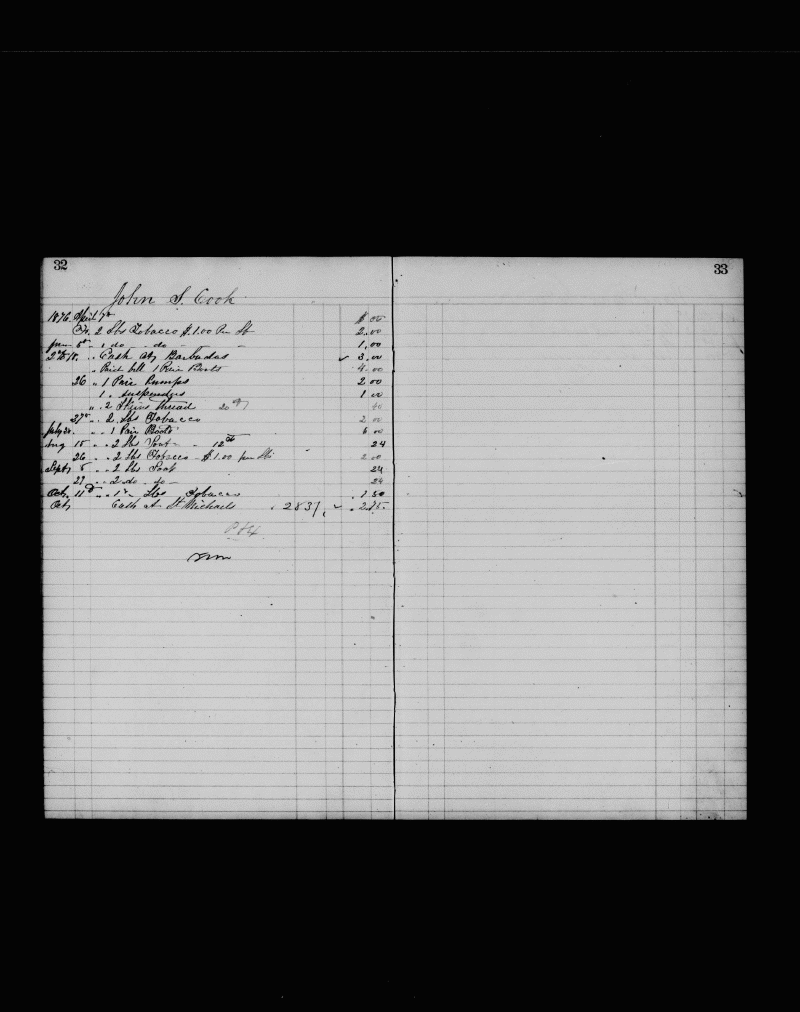 32
33
John S. Cook
1876 April 7th $ cts
2 lbs Tobacco $1.00 Per lb 2.00
June 5th 1 do - do - 1.00
Cash at Barbadas 3.00
Paid bill 1 Pair Boots 4.00
26 " 1 Pair Pumps 2 00
1 " Suspenders 1 00
" 2 Skeins thread 20 40
27th " 2 lbs Tobacco 2 00
July " " 1 Pair Boots 5 00
Aug 15 " " 2 lbs 12 cts 24
26 " " 2 lbs Tobacco - $1.00 per lb 2 00
Sept 5 " " 2 lbs Soap 24
27 " " 2 do - do - 24
Oct 11 " " lbs Tobacco 1 50
Oct Cash at St Michaels 2837 2.75